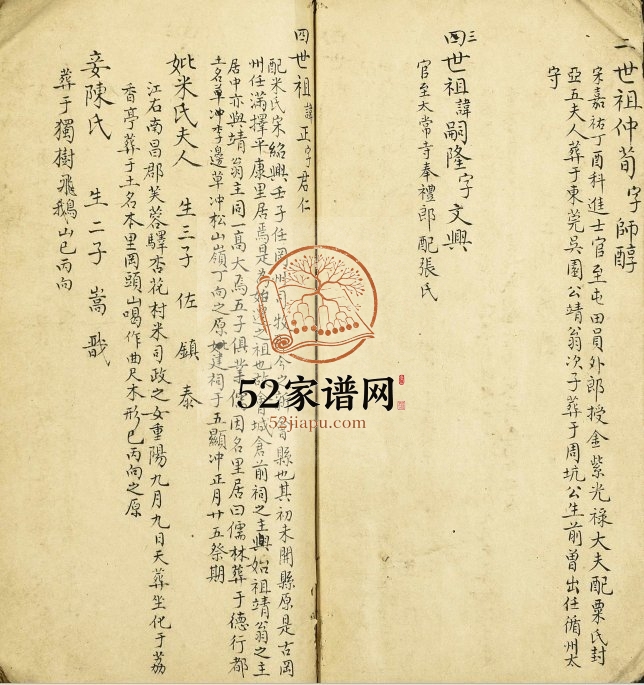 二世祖仲荀字師醇
宋嘉祐丁酉科進士官至屯田員外郎授金紫光祿大夫配粟氏封
亞五夫人葬于東莞吳園公靖翁次子葬于周坑公生前曾出任循州太
守
三四世祖諱嗣隆字文興
官至太常寺奉禮郎配張氏
四世祖諱正字君仁
配米氏宋紹興壬子任岡州司牧今之新會縣也其初未開縣原是古岡
州任滿擇平康里居焉是為始遷之祖也故會城倉前祠之主與始祖靖翁之主
居中亦與靖翁主同一高大焉五子俱業儒因名里居曰儒林葬于德行都
土名草冲李邊草冲松山嶺丁向之原建祠于五顯冲正月廿五祭期
妣米氏夫人 生三子 佐 鎮 泰
江右南昌郡芙蓉驛杏花村米司政之女重陽九月九日天葬坐化于荔
香亭葬于土名本里岡頭山喝作曲尺木形巳丙向之原
妾陳氏 生二子 嵩 戩
葬于獨樹飛鵝山巳丙向
52家谱网
52jiapu.com